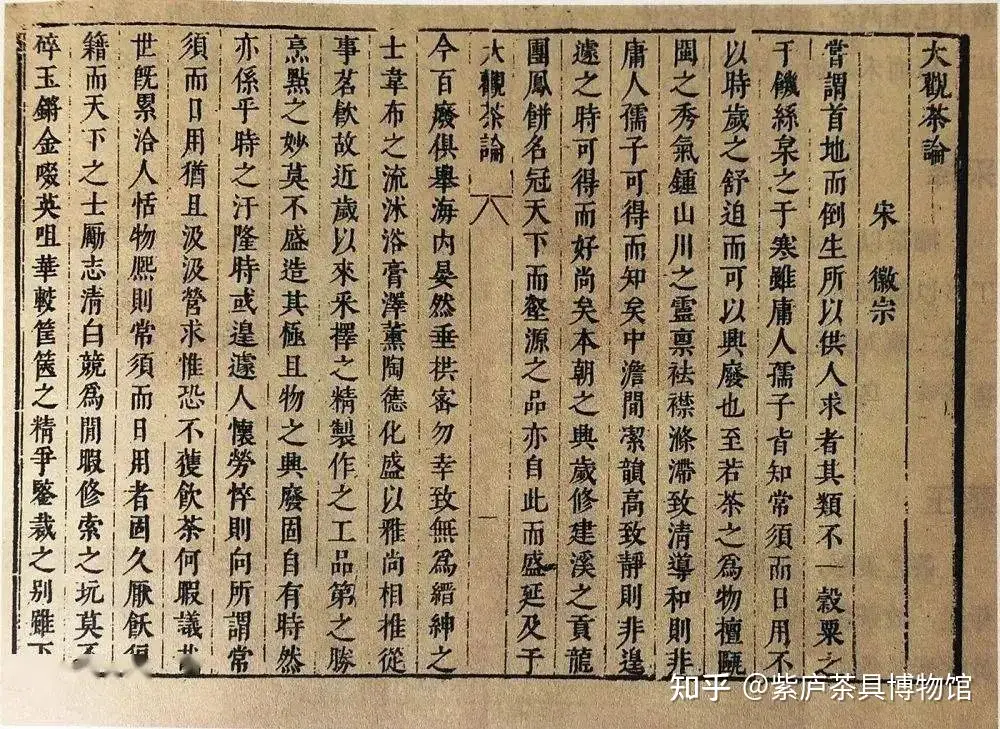 大觀茶論
宋 徽宗
嘗謂首地而倒生所以供人求者其類不一穀粟之
于饑絲枲之于寒雖庸人孺子皆知常須而日用不
以時歲之舒迫而可以興廢也至若茶之爲物擅甌
閩之秀氣鍾山川之靈禀祛襟滌滯致清導和則非
庸人孺子可得而知矣中澹閒潔韻高致靜則非遑
遽之時可得而好尚矣本朝之興歲修建溪之貢龍
團鳳餅名冠天下而壑源之品亦自此而盛延及于
大觀茶論 一
今百廢俱舉海内晏然垂拱密勿幸致無爲縉紳之
士韋布之流沐浴膏澤薰陶德化盛以雅尚相推從
事茗飲故近歲以來采擇之精製作之工品第之勝
烹點之妙莫不盛造其極且物之興廢固自有時然
亦係乎時之汙隆時或遑遽人懷勞悴則向所謂常
須而日用猶且汲汲營求惟恐不獲飲茶何暇議
世旣累洽人恬物熙則常須而日用者固久厭飫
籍而天下之士勵志清白競爲閒暇修索之玩莫不
碎玉鏘金啜英咀華較筐篋之精爭鑒裁之别雖下
知乎 @紫庐茶具博物馆